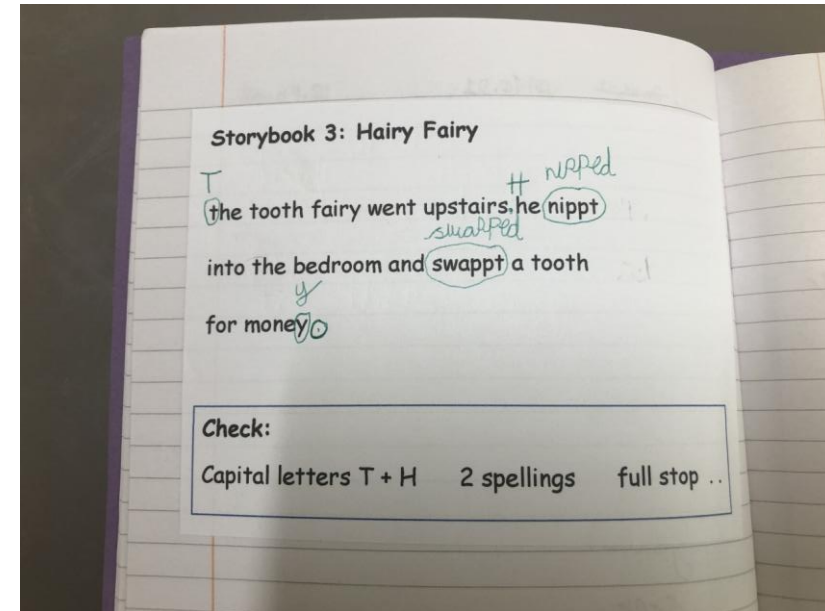 Storybook 3: Hairy Fairy
T H nipped
the tooth fairy went upstairs. he nippt
swapped
into the bedroom and swappt a tooth
y
for money.
Check:
Capital letters T + H 2 spellings full stop ..